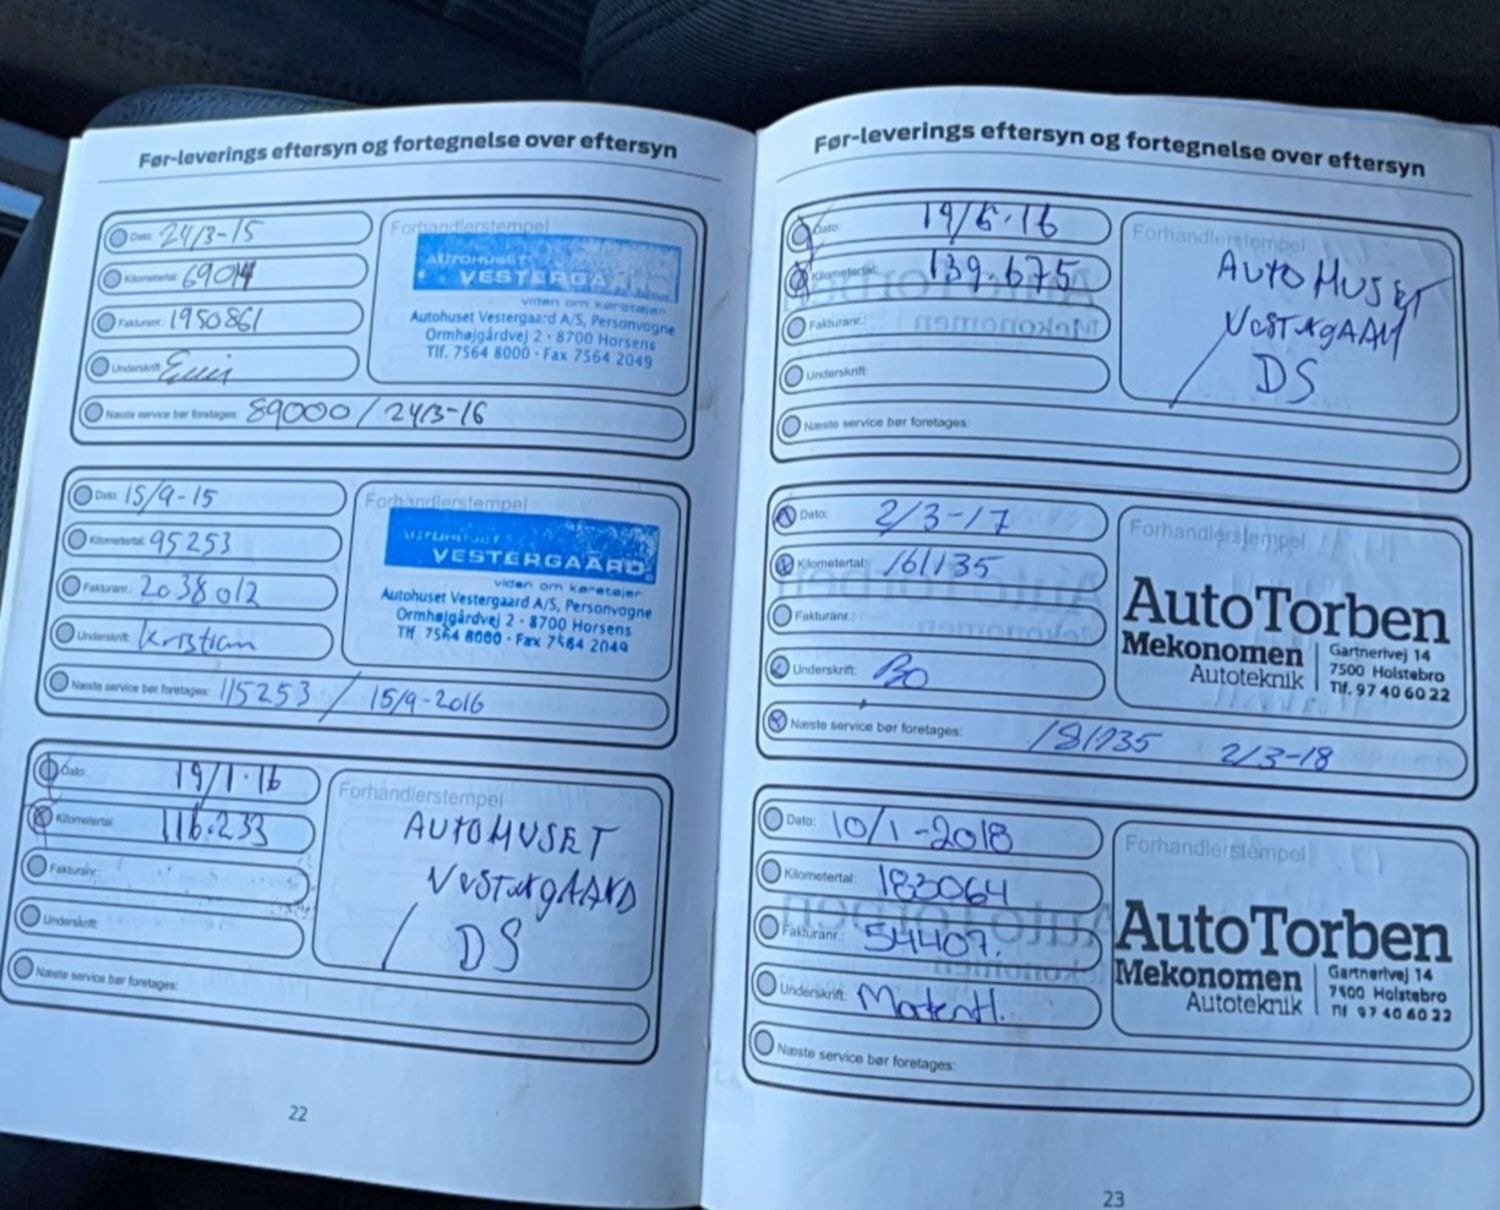 Før-leverings eftersyn og fortegnelse over eftersyn
Dato: 24/3-15
Kilometertal: 69014
Fakturanr.: 1950861
Underskrift:
Næste service bør foretages: 89000 / 24/3-16
Forhandlerstempel
AUTOHUSET
VESTERGAARD
viden om køretøjer
Autohuset Vestergaard A/S, Personvogne
Ormhøjgårdvej 2 · 8700 Horsens
Tlf. 7564 8000 · Fax 7564 2049
Dato: 15/9-15
Kilometertal: 95253
Fakturanr.: 2038012
Underskrift: Kristian
Næste service bør foretages: 115253 / 15/9-2016
Forhandlerstempel
AUTOHUSET
VESTERGAARD
viden om køretøjer
Autohuset Vestergaard A/S, Personvogne
Ormhøjgårdvej 2 · 8700 Horsens
Tlf. 7564 8000 · Fax 7564 2049
Dato: 19/1·16
Kilometertal: 116.233
Fakturanr.:
Underskrift:
Næste service bør foretages:
Forhandlerstempel
AUTOHUSET
VESTERGAARD
/ DS
22
Før-leverings eftersyn og fortegnelse over eftersyn
Dato: 19/6·16
Kilometertal: 139.675
Fakturanr.:
Underskrift:
Næste service bør foretages:
Forhandlerstempel
AUTOHUSET
VESTERGAARD
/ DS
Dato: 2/3-17
Kilometertal: 161135
Fakturanr.:
Underskrift: Bo
Næste service bør foretages: 181135 2/3-18
Forhandlerstempel
AutoTorben
Mekonomen
Autoteknik
Gartnerivej 14
7500 Holstebro
Tlf. 97 40 60 22
Dato: 10/1-2018
Kilometertal: 183064
Fakturanr.: 54407.
Underskrift: Morten H.
Næste service bør foretages:
Forhandlerstempel
AutoTorben
Mekonomen
Autoteknik
Gartnerivej 14
7500 Holstebro
Tlf 97 40 60 22
23